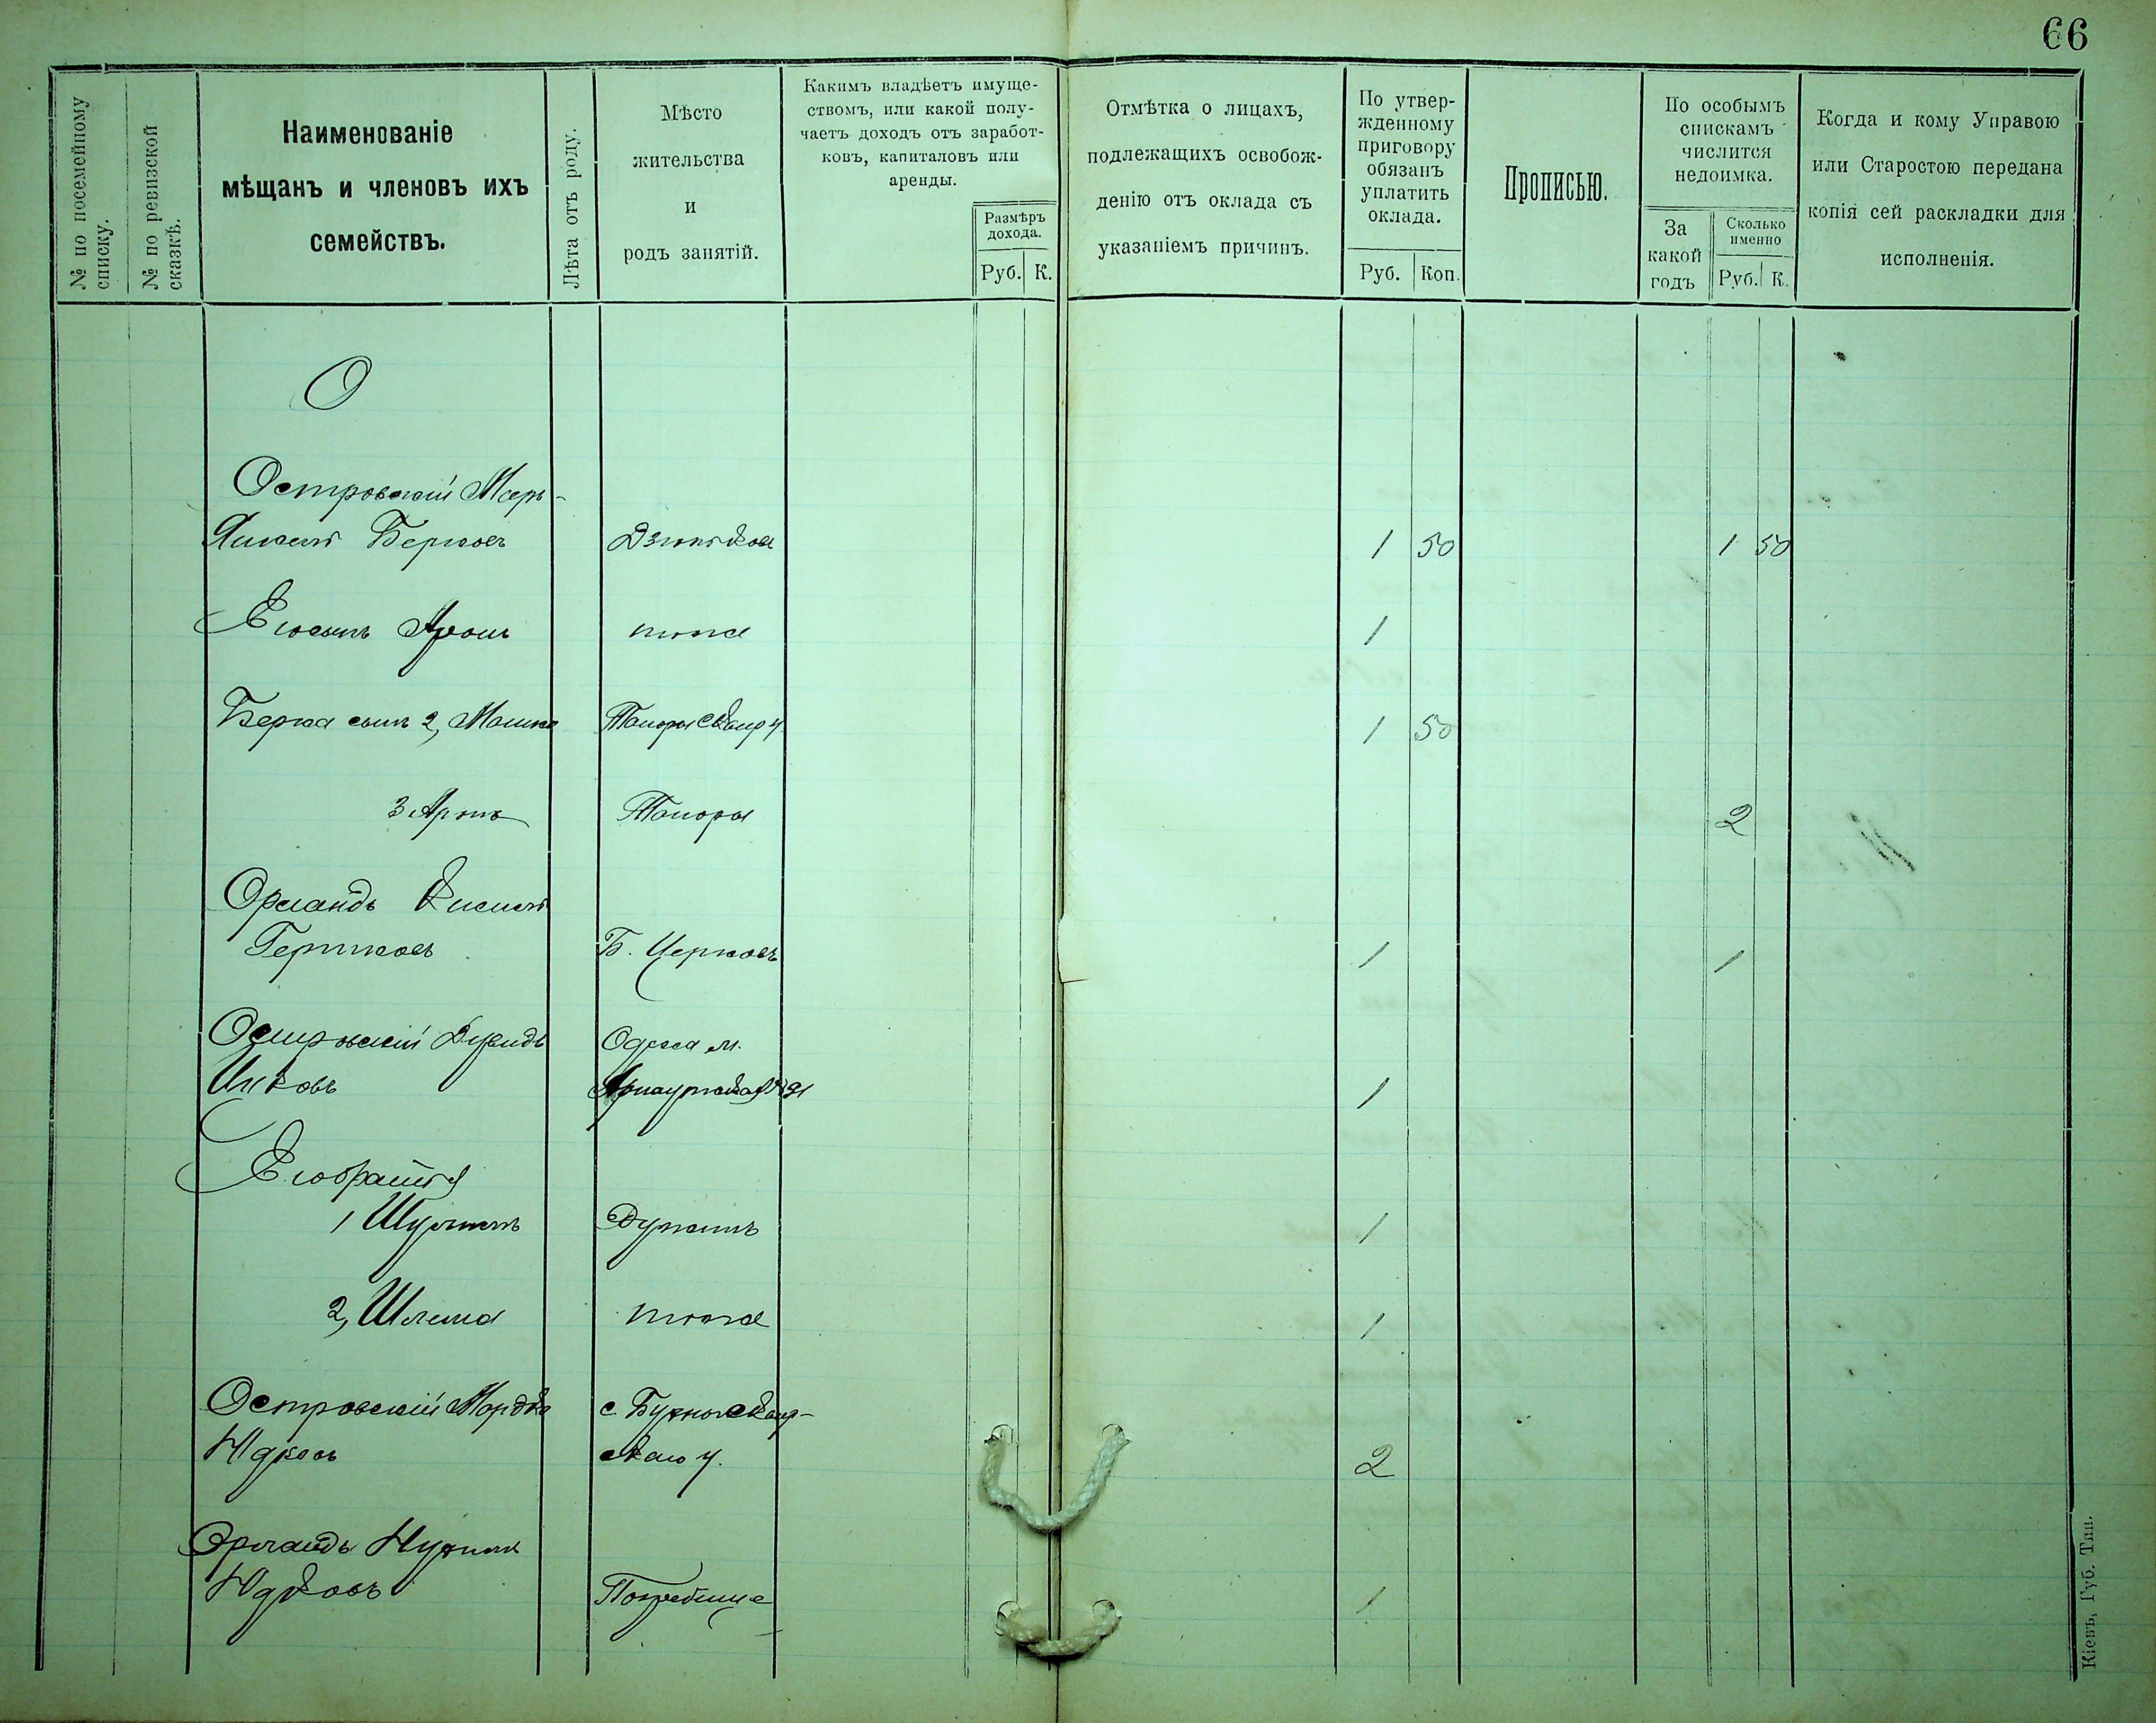 66
№ по посемейному
списку.
№ по ревизской
сказкѣ.
Наименованіе
мѣщанъ и членовъ ихъ
семействъ.
Лѣта отъ роду.
Мѣсто
жительства
и
родъ занятій.
Какимъ владѣетъ имуще-
ствомъ, или какой полу-
чаетъ доходъ отъ заработ-
ковъ, капиталовъ или
аренды.
Размѣръ
дохода.
Руб. К.
Отмѣтка о лицахъ,
подлежащихъ освобож-
денію отъ оклада съ
указаніемъ причинъ.
По утвер-
жденному
приговору
обязанъ
уплатить
оклада.
Руб. Коп.
Прописью.
По особымъ
спискамъ
числится
недоимка.
За
какой
годъ
Сколько
именно
Руб. К.
Когда и кому Управою
или Старостою передана
копія сей раскладки для
исполненія.
О
Островскій Меръ-
Янкель Берковъ 1 50 1 50
Его сынъ Аронъ тоже 1
Берка сынъ 2, Мошко Топоры Сквир у. 1 50
3 Аронъ Топоры 2
Орландъ Кисиль
Гершковъ Б. Церковь 1 1
Островскій Дувидъ Одесса
Ицковъ 1
Его братья
1 Шулимъ Ружинъ 1
2, Шлема тоже 1
Островскій Мордко с. Сквир-
Юдковъ скаго у. 2
Орландъ Нухимъ
Юдковъ Погребище 1
Кіевъ, Губ. Тип.